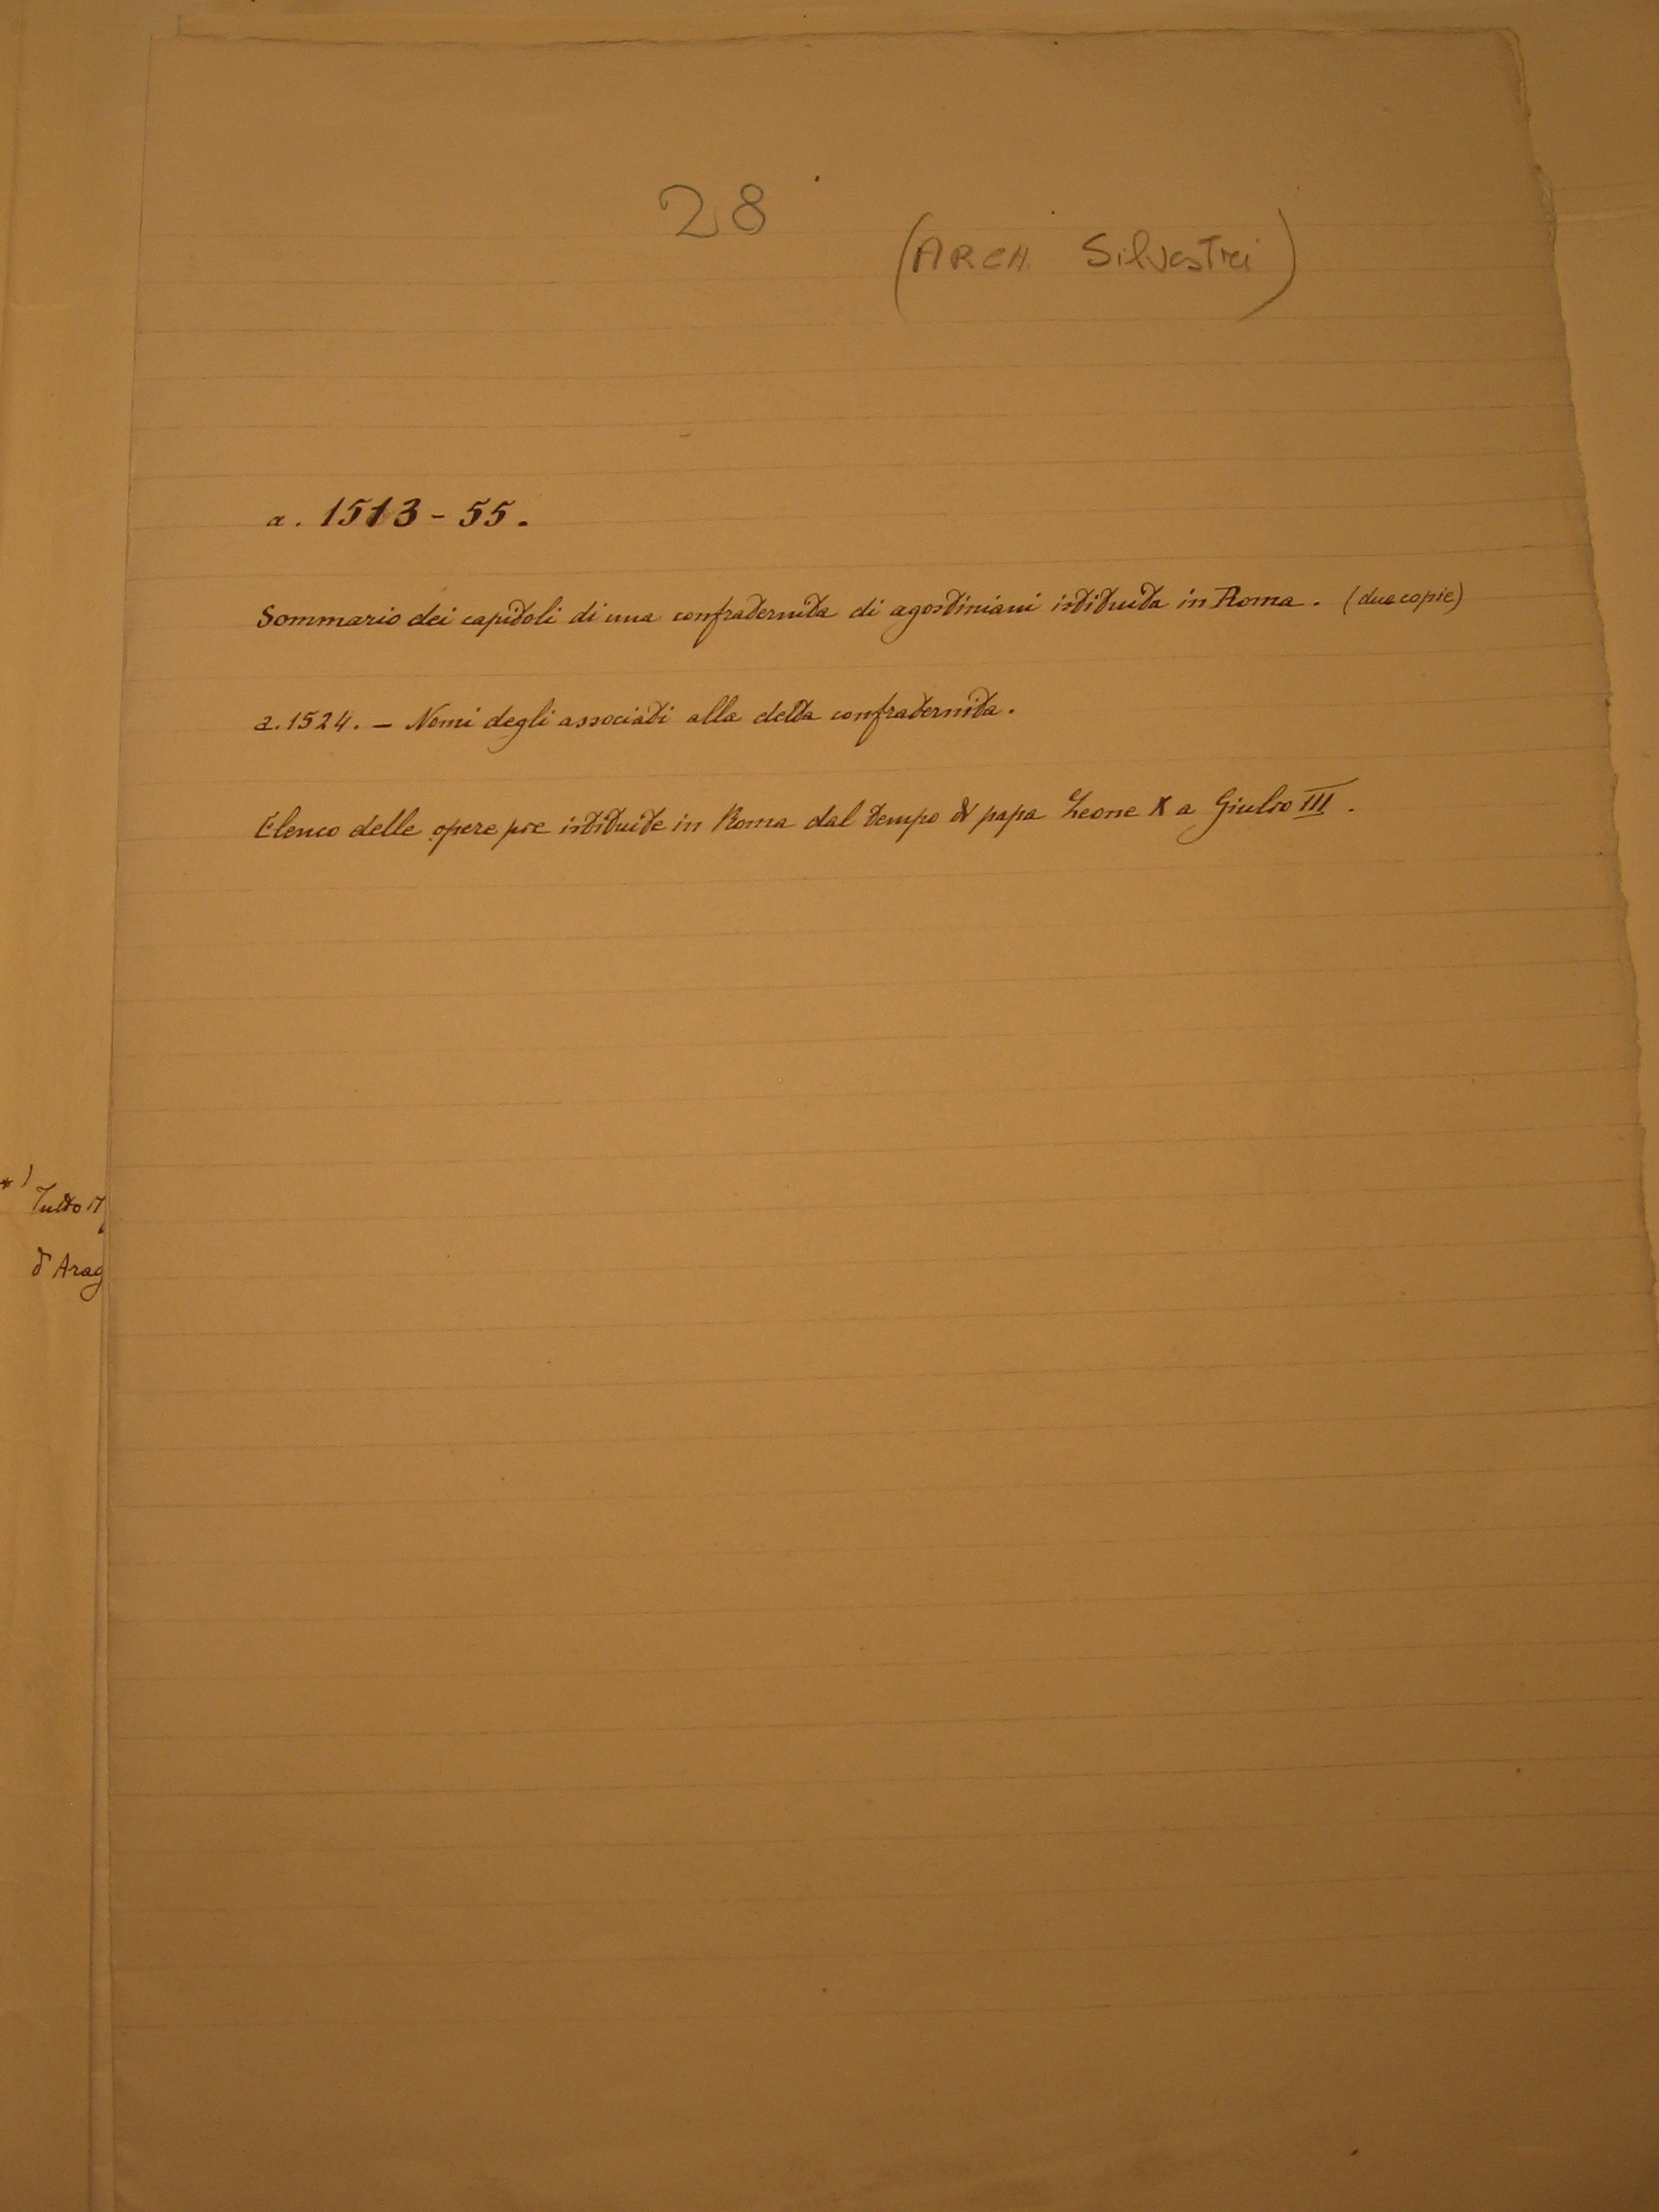 28
(ARCH. Silvestri)
a. 1513 - 55.
Sommario dei capitoli di una confraternita di agostiniani istituita in Roma. (due copie)
a. 1524. — Nomi degli associati alla detta confraternita.
Elenco delle opere pie istituite in Roma dal tempo di papa Leone X a Giulio III.
*)
Tutto il
d'Arag